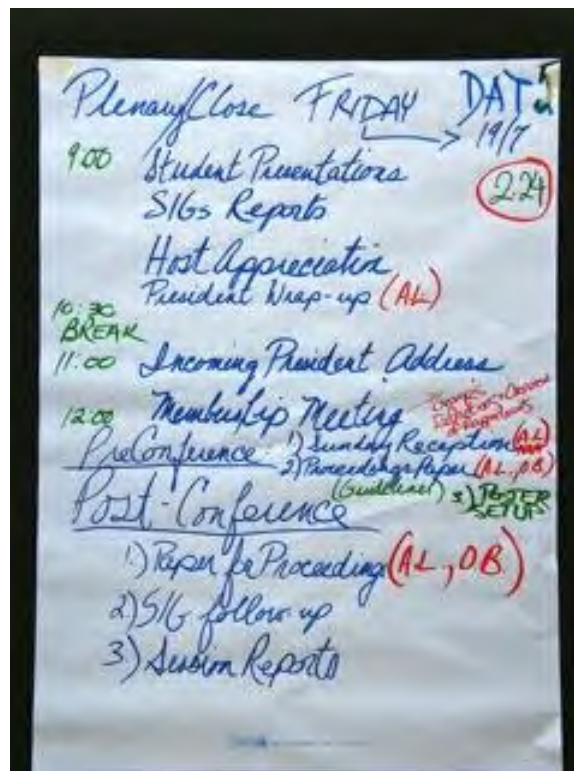 Plenary/Close FRIDAY DAY 5
19/7
9:00 Student Presentations
2.24
SIGs Reports
Host Appreciation
President Wrap-up (AL)
10:30
BREAK
11:00 Incoming President Address
12:00 Membership Meeting
PreConference 1) Sunday Reception (AL)
2) Proceedings Paper (AL, OB)
(Guidelines) 3) POSTER
SETUP
Post-Conference
1.) Paper for Proceeding (AL, OB)
2) SIG follow-up
3) Session Reports